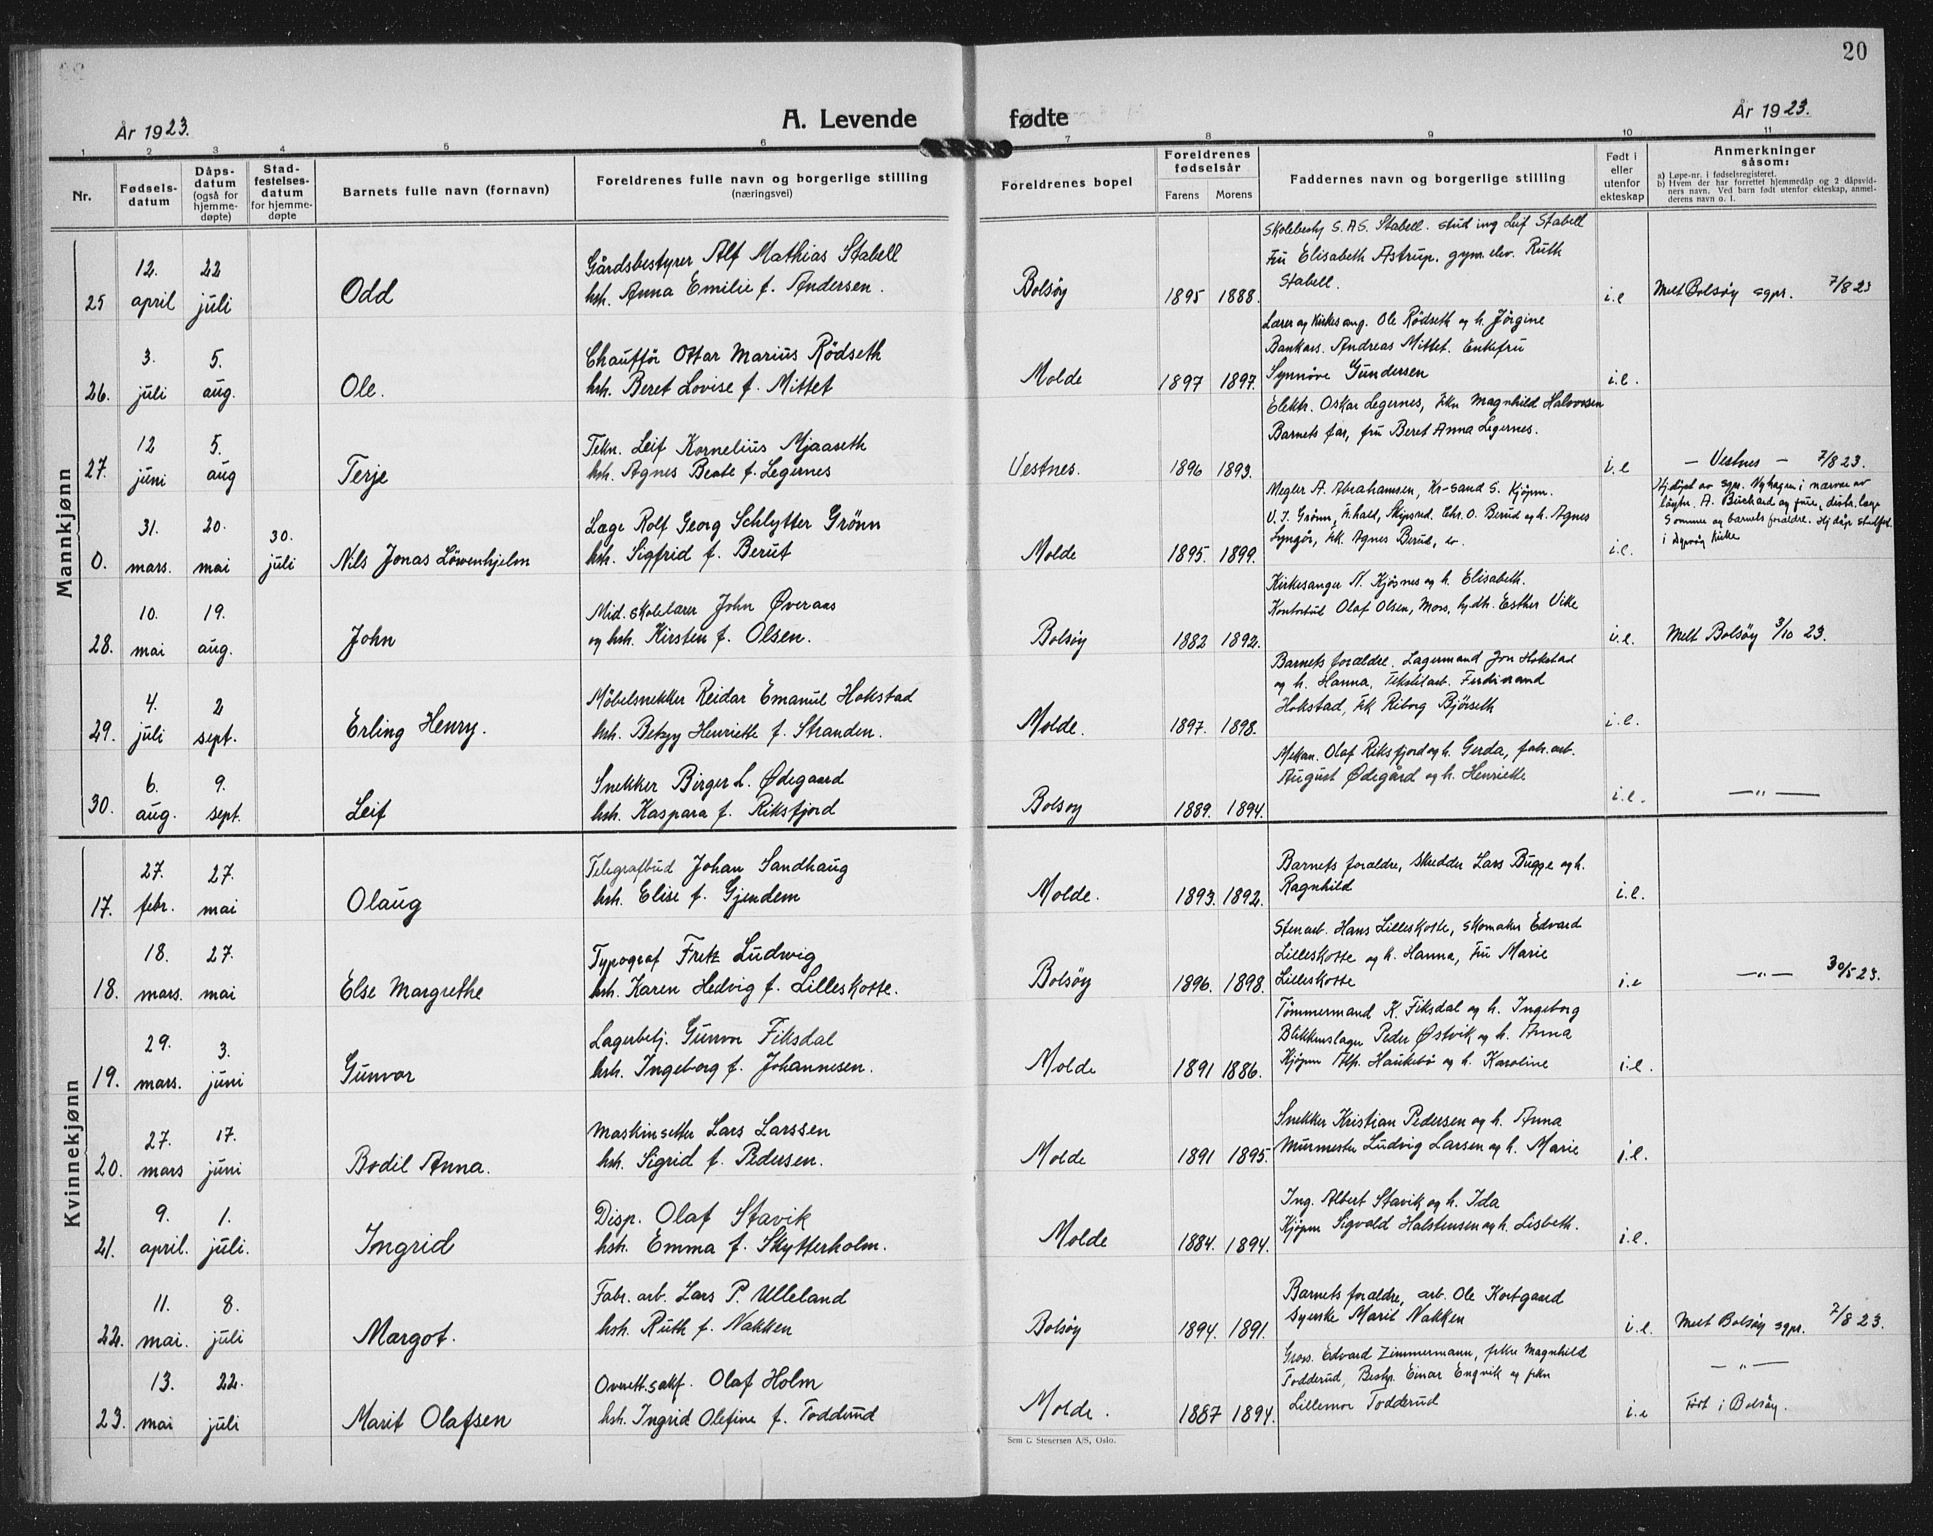 20
År 1923.
A. Levende
fødte
År 1923.
1 2 3 4 5 6 7 8 9 10 11
Nr.
Fødsels-
datum
Dåps-
datum
(også for
hjemme-
døpte)
Stad-
festelses-
datum
for hjemme-
døpte
Barnets fulle navn (fornavn)
Foreldrenes fulle navn og borgerlige stilling
(næringsvei)
Foreldrenes bopel
Foreldrenes
fødselsår
Farens Morens
Faddernes navn og borgerlige stilling
Født i
eller
utenfor
ekteskap
Anmerkninger
såsom:
a) Løpe-nr. i fødselsregisteret.
b) Hvem der har forrettet hjemmedåp og 2 dåpsvid-
ners navn. Ved barn født utenfor ekteskap, anmel-
derens navn o. l.
Mannkjønn
25
12.
april
22
juli
Odd
Gårdsbestyrer Alf Mathias Stabell
hsh. Anna Emilie f. Andersen.
Bolsøy
1895 1888.
Skolebesty S. A S. Stabell. stud ing Leif Stabell
Fru Elisabeth Astrup. gym. elev. Ruth
Stabell.
i.e
Melt Bolsøy sgpr. 7/8 23
26.
3.
juli
5.
aug.
Ole.
Chauffør Ottar Marius Rødseth
hsh. Beret Lovise f. Mittet
Molde
1897 1897.
Lærer og Kirkesang. Ole Rødseth og h. Jørgine
Bankass. Andreas Mittet. Enkefru
Synnøve Gundersen
i.e.
27.
12
juni
5.
aug
Terje
Tekn. Leif Kornelius Mjaaseth
hsh. Agnes Beate f. Legernes
Vestnes.
1896 1893.
Elektr. Oskar Legernes, frkn Magnhild Halvorsen
Barnets far, fru Beret Anna Legernes.
i.e
— Vestnes — 7/8 23.
0.
31.
mars.
20.
mai
30.
juli
Nils Jonas Löwenhjelm
Læge Rolf Georg Schlytter Grönn
hsh. Sigfrid f. Berut
Molde
1895. 1899.
Megler A. Abrahamsen, Kr-sand S. Kjøpm.
V. J. Grönn, Skipsred. Chr. O. Berud og h. Agnes
Lyngør, frk Agnes Berud,
i.e.
Hj. døpt av sgpr. Nyhagen i nærvær av
A. Buchard og frue, distr. læge
Sommer og barnets forældre. Hj dåp stadfst.
i kirke
28.
10.
mai
19.
aug.
John
Mid. skolelærer John Øveraas
og hsh. Kirsten f. Olsen.
Bolsøy
1882 1892.
Kirkesanger N. Kjøsnes og h. Elisabeth.
Kontorbud Olaf Olsen, Moss, hj.dh. Esther Vike
i.e.
Melt Bolsøy 3/10 23.
29.
4.
juli
2
sept.
Erling Henry.
Møbelsnekker Reidar Emanuel Hokstad
hsh. Betzy Henriette f. Stranden.
Molde.
1897. 1898.
Barnets forældre. Lagermand Jon Hokstad
og h. Hanna, Tekstilarb. Ferdinand
Hokstad, frk Riborg Bjørseth
i.e.
30.
6.
aug.
9.
sept.
Leif
Snekker Birger L. Ødegaard
hsh. Kaspara f. Riksfjord
Bolsøy
1889. 1894.
Mekan. Olaf Riksfjord og h. Gerda, fabr. arb.
August Ødegård og h. Henriette
i.e.
— „ —
Kvinnekjønn
17.
27.
febr.
27.
mai
Olaug
Telegrafbud Johan Sandhaug
hsh. Elise f. Gjendem
Molde.
1893. 1892.
Barnets forældre, skredder Lars Bugge og h.
Ragnhild
i.e.
18.
18.
mars.
27.
mai
Else Margrethe
Typograf Fretz Ludwig
hsh. Karen Hedvig f. Lilleskotte.
Bolsøy
1896. 1898.
Stenarb. Hans Lilleskotte, skomaker Edvard
Lilleskotte og h. Hanna, Fru Marie
Lilleskotte
i.e
— „ — 30/5 23.
19.
29.
mars.
3.
juni
Gunvor
Lagerbetj. Gunvor Fiksdal
hsh. Ingeborg f. Johannesen.
Molde
1891 1886.
Tømmermand K. Fiksdal og h. Ingeborg
Blikkenslager Peder Østvik og h. Anna
Kjøpm Haukebø og h. Karoline
i.e.
20.
27.
mars
17.
juni
Bodil Anna.
Maskinsetter Lars Larssen
hsh. Sigrid f. Pedersen.
Molde
1891 1895.
Snekker Kristian Pedersen og h. Anna
Murmester Ludvig Larsen og h. Marie
i.e.
21.
9.
april.
1.
juli.
Ingrid
Disp. Olaf Stavik
hsh. Emma f. Skytterholm.
Molde
1884. 1894.
Ing. Albert Stavik og h. Ida
Kjøpm Sigvald Halstensen og h. Lisbeth.
i.e.
22.
11.
mai.
8.
juli
Margot.
Fabr. arb. Lars P. Ulleland
hsh. Ruth f. Nakken
Bolsøy
1894. 1891.
Barnets forældre, arb. Ole Kortgaard
syerske Marit Nakken
i.e.
Melt Bolsøy sgpr. 7/8 23.
23.
13.
mai
22.
juli
Marit Olafsen
Overett.sakf. Olaf Holm
hsh. Ingrid Olefine f. Todderud
Molde.
1887 1894.
Gross. Edvard Zimmermann, frkn Magnhild
Todderud, Bestyr. Einar Engvik og frkn
Lillemor Todderud
i.e
— „ —
Født i Bolsøy.
Sem & Stenersen A/S, Oslo.